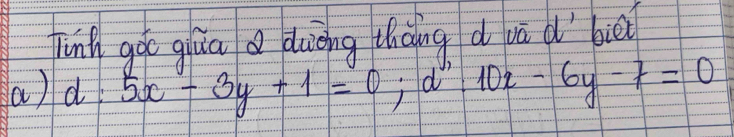 Tính góc giữa 2 đường thẳng d và d' biết
a) d: 5x - 3y + 1 = 0; d': 10x - 6y - 7 = 0